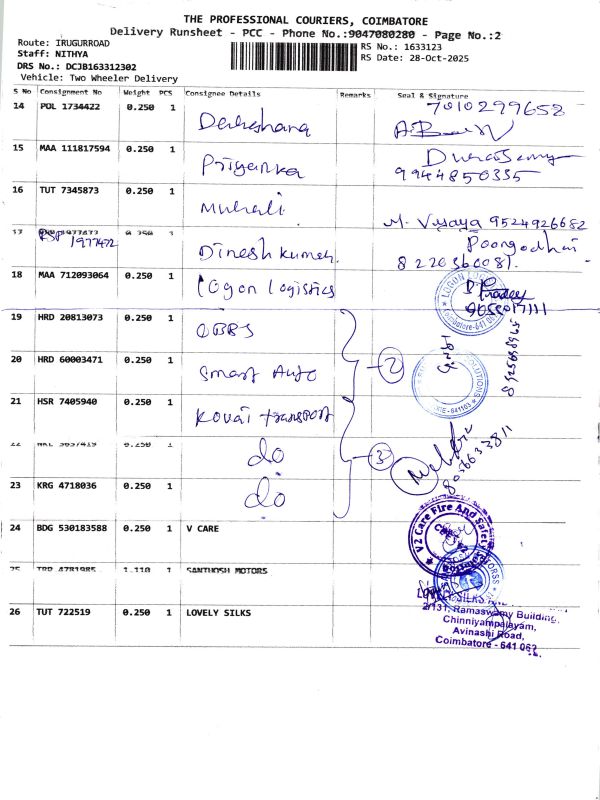 THE PROFESSIONAL COURIERS, COIMBATORE
Delivery Runsheet - PCC - Phone No.:9047080280 - Page No.:2
Route: IRUGURROAD
Staff: NITHYA
DRS No.: DCJB163312302
Vehicle: Two Wheeler Delivery
RS No.: 1633123
RS Date: 28-Oct-2025
S No Consignment No Weight PCS Consignee Details Remarks Seal & Signature
14 POL 1734422 0.250 1 Darshana 7010299658
15 MAA 111817594 0.250 1 Priyanka
9944850335
16 TUT 7345873 0.250 1 Murali M. Vijaya 9524926682
17 RSP 1977472 0.250 1 Dinesh kumar.
8220360081.
18 MAA 712093064 0.250 1 Logon Logistics
9055017111
19 HRD 20813073 0.250 1 QBRS
20 HRD 60003471 0.250 1 Smart Auto 2
21 HSR 7405940 0.250 1 Kovai transport
22 0.250 1 do 3
23 KRG 4718036 0.250 1 do
24 BDG 530183588 0.250 1 V CARE
V2 Care Fire And Safety
25 1.110 1 SANTHOSH MOTORS
26 TUT 722519 0.250 1 LOVELY SILKS
2/131, Ramaswamy Building,
Chinniyampalayam,
Avinashi Road,
Coimbatore - 641 062.